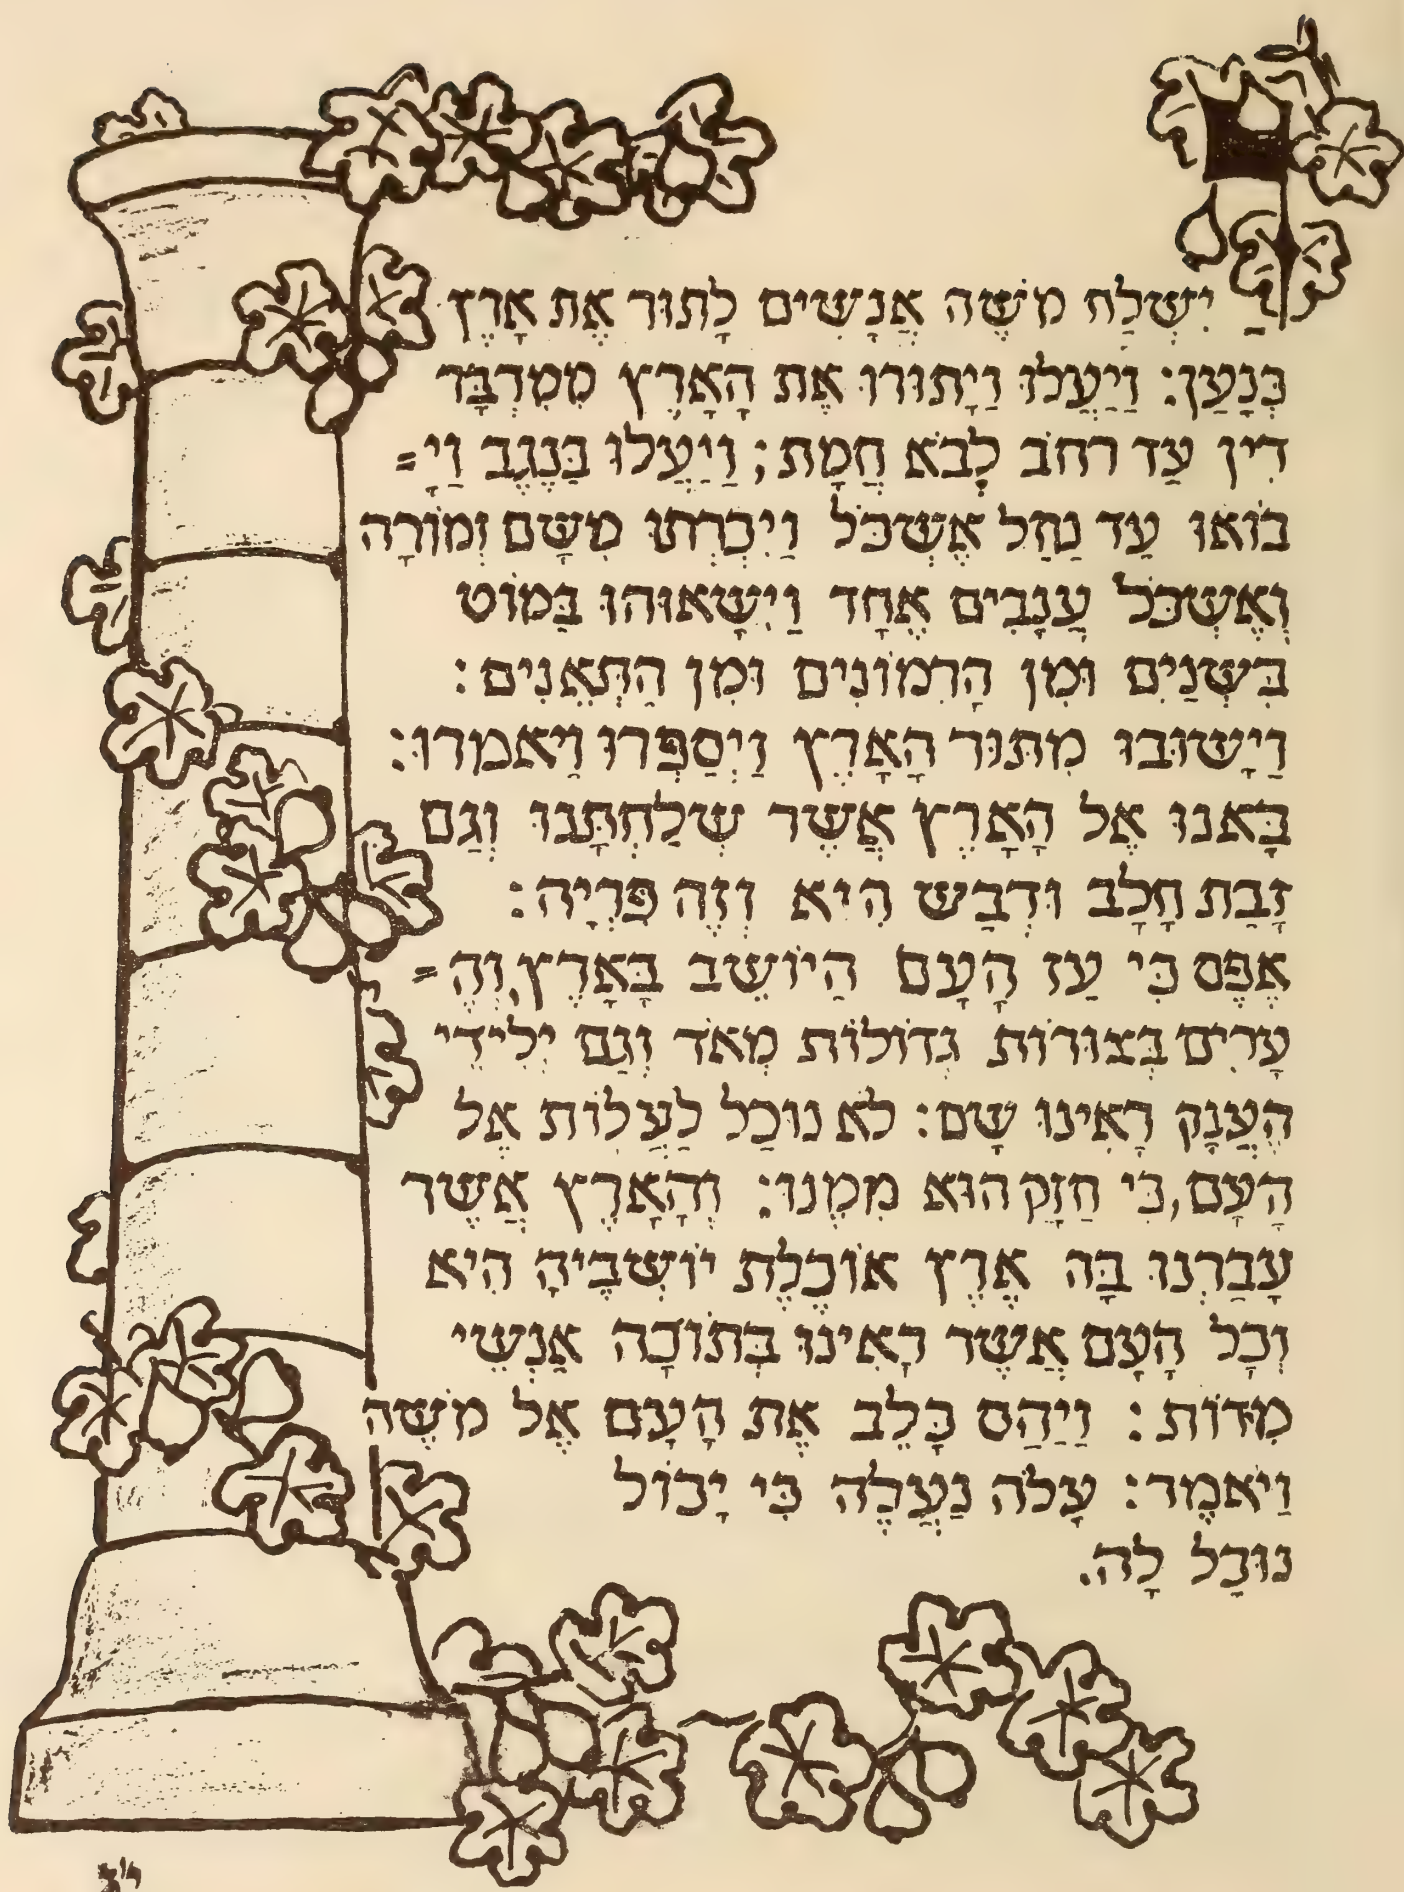 וַיִשְלַח מֹשֶה אֲנָשִים לָתוּר אֶת אָרֶץ
כְּנָעַן: וַיַעֲלוּ וַיָתוּרוּ אֶת הָאָרֶץ מִמִדְבָּר
צִין עַד רחֹב לְבֹא חֲמָת; וַיַעֲלוּ בַּנֶגֶב וַיָ=
בוֹאוּ עַד נַחַל אֶשְכֹּל וַיִכְרְתוּ מִשָם זְמוֹרָה
וְאֶשְכֹּל עֲנָבִים אֶחָד וַיִשָאוּהוּ בַּמוֹט
בִּשְנַיִם וּמִן הָרִמוֹנִים וּמִן הַתְּאֵנִים:
וַיָשוּבוּ מִתּוּר הָאָרֶץ וַיְסַפְּרוּ וַיֹאמרוּ:
בָּאנוּ אֶל הָאָרֶץ אֲשֶר שְלַחְתָּנוּ וְגַם
זָבַת חָלָב וּדְבָש הִיא וְזֶה פִּרְיָה:
אֶפֶס כִּי עַז הָעָם הַיוֹשֵב בָּאָרֶץ, וְהֶ=
עָרִים בְּצוּרוֹת גְדוֹלוֹת מְאֹד וְגַם יְלִידֵי
הָעֲנָק רָאִינוּ שָם: לֹא נוּכַל לַעֲלוֹת אֶל
הָעָם, כִּי חַזָק הוּא מִמֶנוּ: וְהָאָרֶץ אֲשֶר
עָבַרְנוּ בָּה אֶרֶץ אוֹכֶלֶת יוֹשְבֶיהָ הִיא
וְכָל הָעָם אֲשֶר רָאִינוּ בְּתוֹכָה אַנְשֵי
מִדוֹת: וַיַהַס כָּלֵב אֶת הָעָם אֶל מֹשֶה
וַיֹאמֶר: עָלֹה נַעֲלֶה כִּי יָכוֹל
נוּכַל לָה.